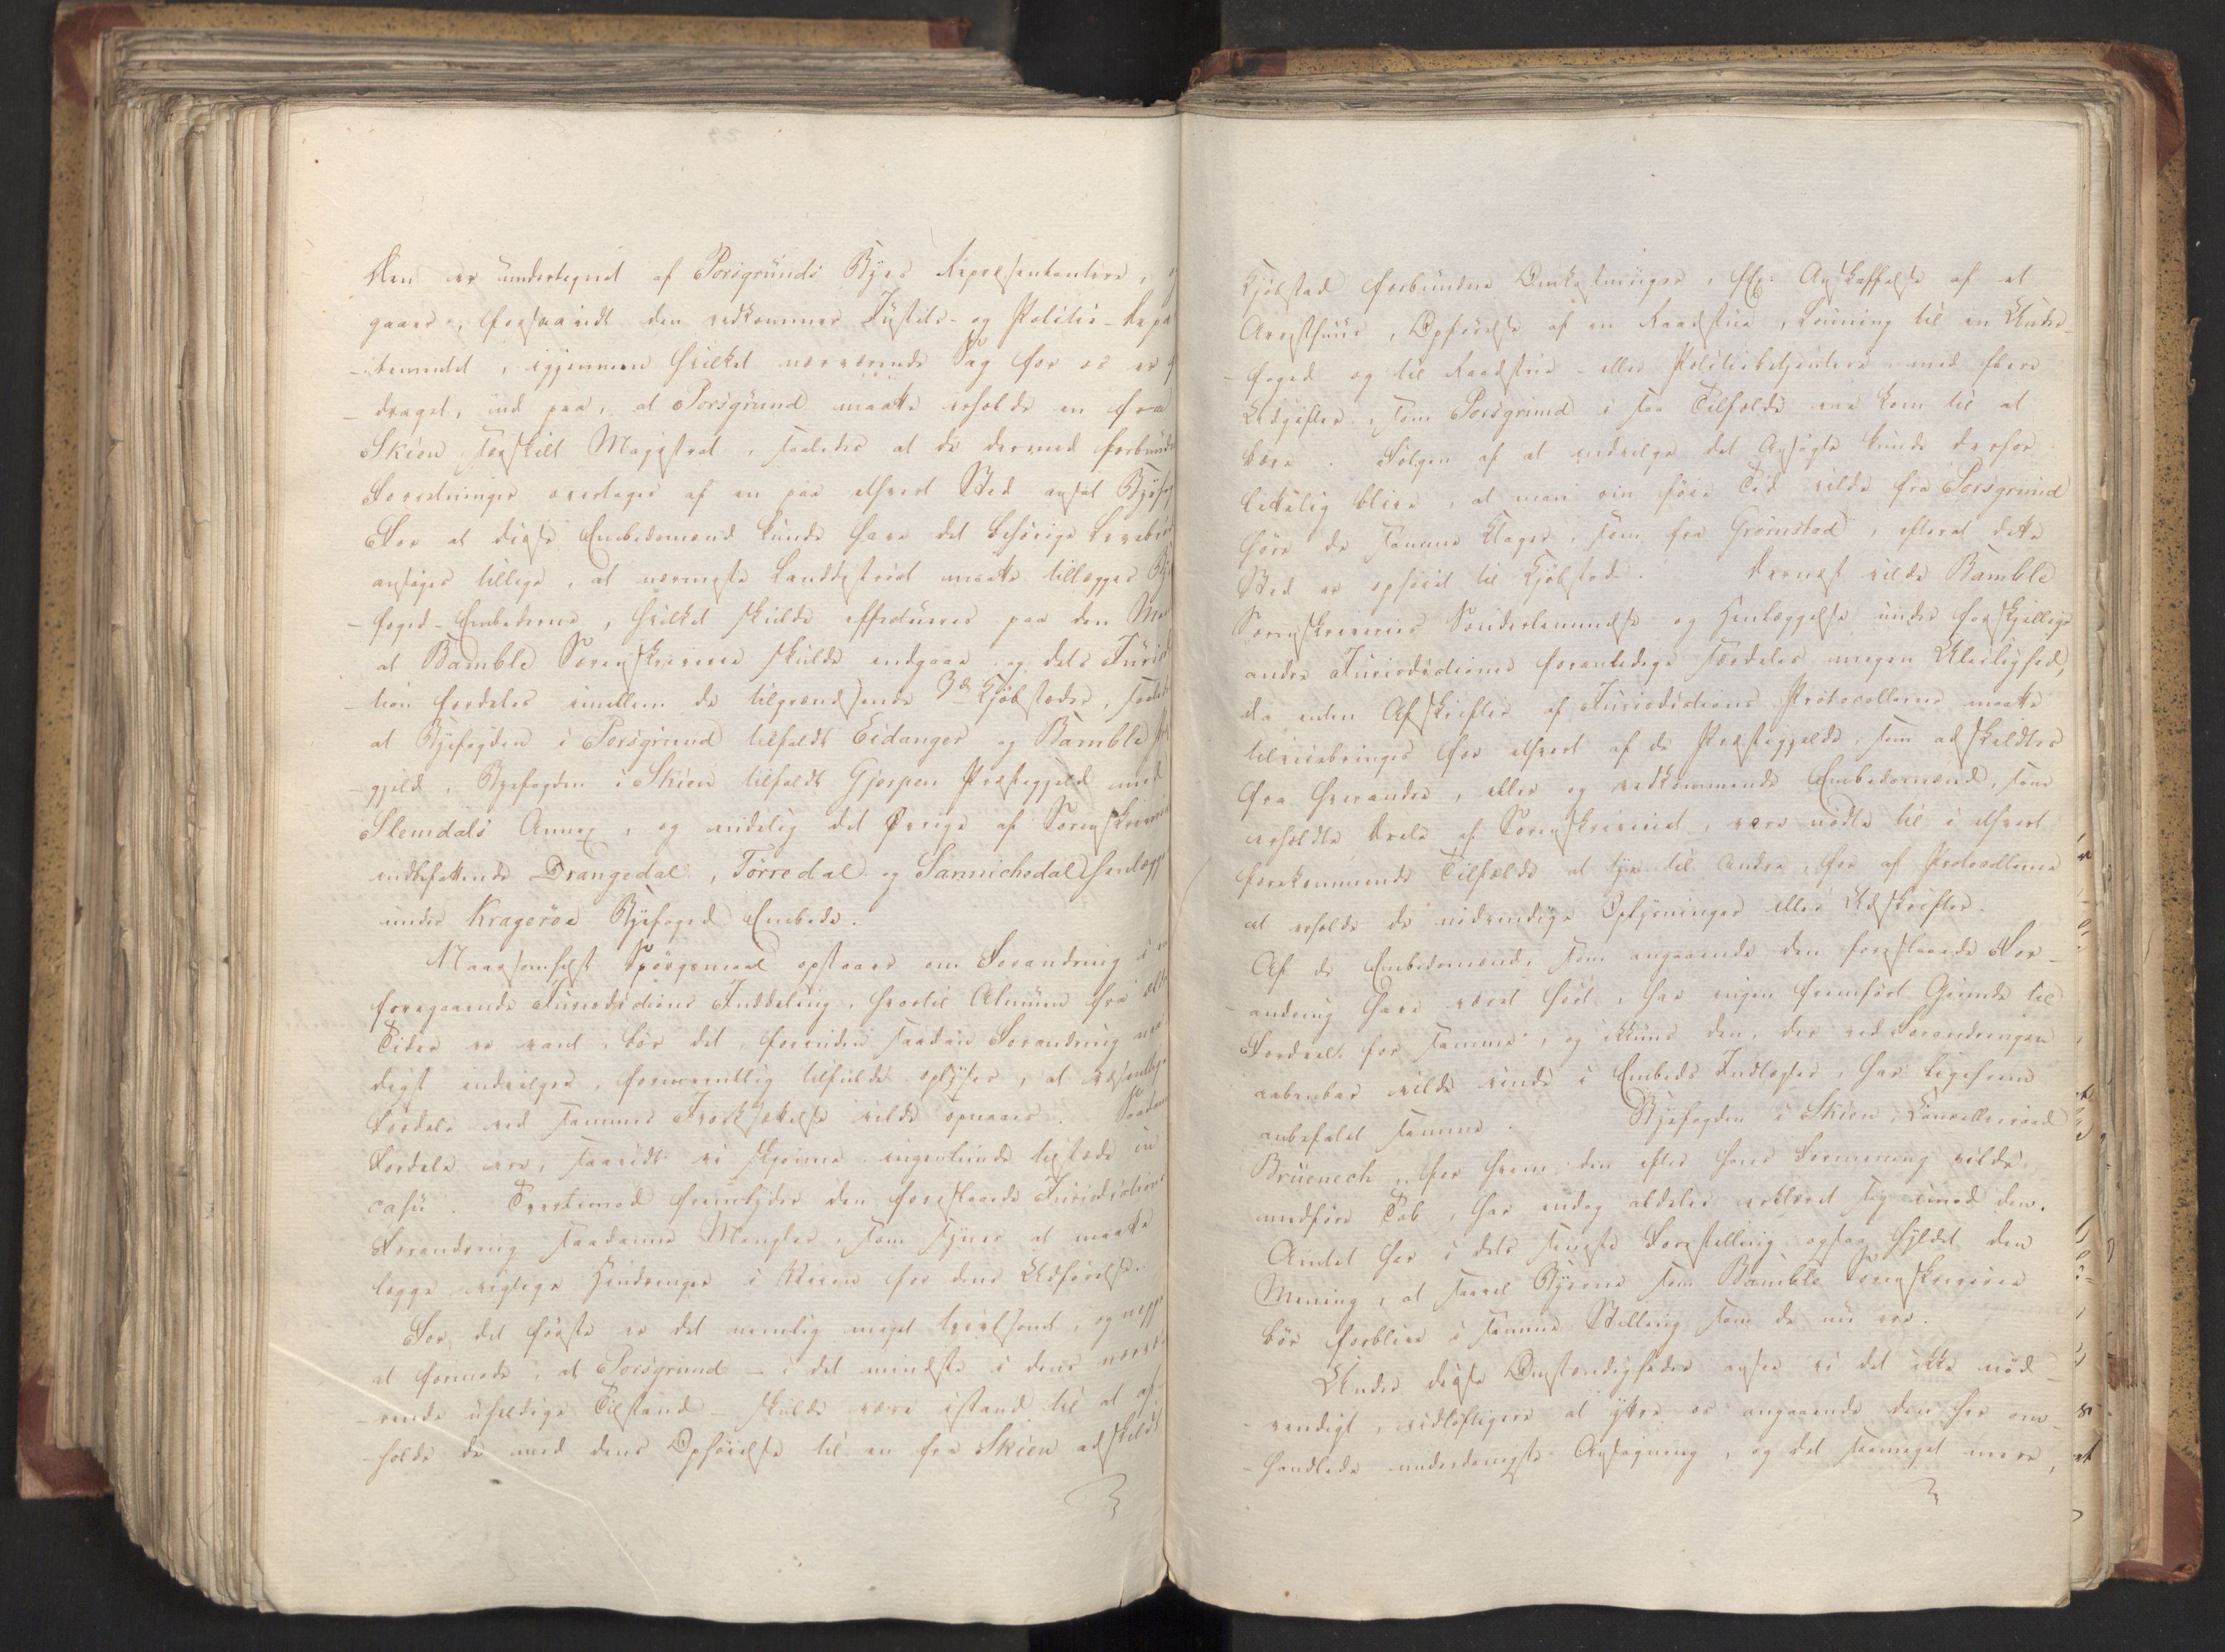 Den er undertegnet af Porsgrunds Byes Repræsentantere, og
gaaer, forsaavidt den vedkommer Justits- og Politie-Depar
-tementet, igjennem hvilket nærværende Sag for os er
-draget, ud paa, at Porsgrund maatte erholde en fra
Skien særskilt Magistrat, saaledes at de dermed forbundne
Forretninger overtages af en paa ethvert Sted ansat Byefoged
For at disse Embedsmænd kunde have det behørige Levebrød
ansøges tillige, at nærmeste Landdistrict maatte tillægges Bye
-foged-Embederne, hvilket skulde effectueres paa den Maade
at Bamble Sorenskriverie skulde indgaae og dets Jurisdic
-tion fordeles imellem de tilgrændsende 3de Kjøbstæder, saaledes
at Byefogden i Porsgrund tilfaldt Eidanger og Bamble Præste
-gjeld, Byefogden i Skien tilfaldt Gjerpen Præstegjeld med
Slemdals Annex, og endelig det Øvrige af Sorenskriveriet
indbefattende Drangedal, Tørredal og Sannichedal henlægges
under Kragerøe Byefoged Embede.
Naarsomhelst Spørgsmaal opstaaer om Forandring i en
foregaaende Jurisdictions Inddeling, hvortil Almuen fra ældre
Tider er vant, bør det, forinden saadan Forandring naa
digst indvilges, formeentlig tilfulde oplyses, at væsentlige
Fordele ved sammes Iværksættelse vilde opnaaes. Saadanne
Fordele ere, saavidt vi skjønne ingenlunde tilstæde in
casu. Tvertimod frembyder den foreslaaede Jurisdictions
Forandring saadanne Mangler, som synes at maatte
lægge vigtige Hindringer i Veien for dens Udførelse.
For det første er det nemlig meget tvivlsomt, og neppe
at formode, at Porsgrund – i det mindste i dens nærvæ
-rende uheldige Tilstand – skulde være istand til at af
-holde de med dens Ophøielse til en fra Skien adskildt
Kjøbstad forbundne Omkostninger, f. Ex: Anskaffelse af et
Arresthuus, Opførelse af en Raadstue, Lønning til en Under-
-foged og til Raadstue- eller Politiebetjentere med flere
Udgifter, som Porsgrund i saa Tilfælde vil kom til at
bære. Følgen af at indvilge det Ansøgte kunde derfor
lettelig blive, at man om føie Tid vilde fra Porsgrund
høre de samme Klager, som fra Grimstad, efterat dette
Sted er ophøiet til Kjøbstad. Dernæst vilde Bamble
Sorenskriveries Sønderlemmelse og Henlæggelse under forskjellige
andre Jurisdictioner foranledige særdeles megen Uleilighed,
da enten Afskrifter af Jurisdictions Protocollerne maatte
tilveiebringes for ethvert af de Præstegjelde, som adskildtes
fra hverandre, eller og vedkommende Embedsmænd, som
erholdte Dele af Sorenskriveriet, være nødte til i ethvert
forekommende Tilfælde at tye til Andre, for af Protocollerne
at erholde de nødvendige Oplysninger eller Udskrifter.
Af de Embedsmænd, som angaaende den foreslaaede For-
-andring have været hørt, har ingen fremført Grunde til
Fordeel for samme, og ikkuns den, der ved Forandringen
aabenbar vilde vinde i Embeds Indtægter, har ligefrem
anbefalet samme. Byefogden i Skien, Cancelliraad
Bruenech, for hvem den efter hans Formening vilde
medføre Tab, har endog aldeles erklæret sig imod den.
Amtet har i dets seneste Forestilling ogsaa hyldet den
Mening, at saavel Byerne som Bamble Sorenskriverie
bør forblive i samme Stilling som de nu ere.
Under disse Omstændigheder ansee vi det ikke nød-
-vendigt, vidtløftigere at yttre os angaaende den her om-
-handlede underdanigste Ansøgning, og det saameget mere,